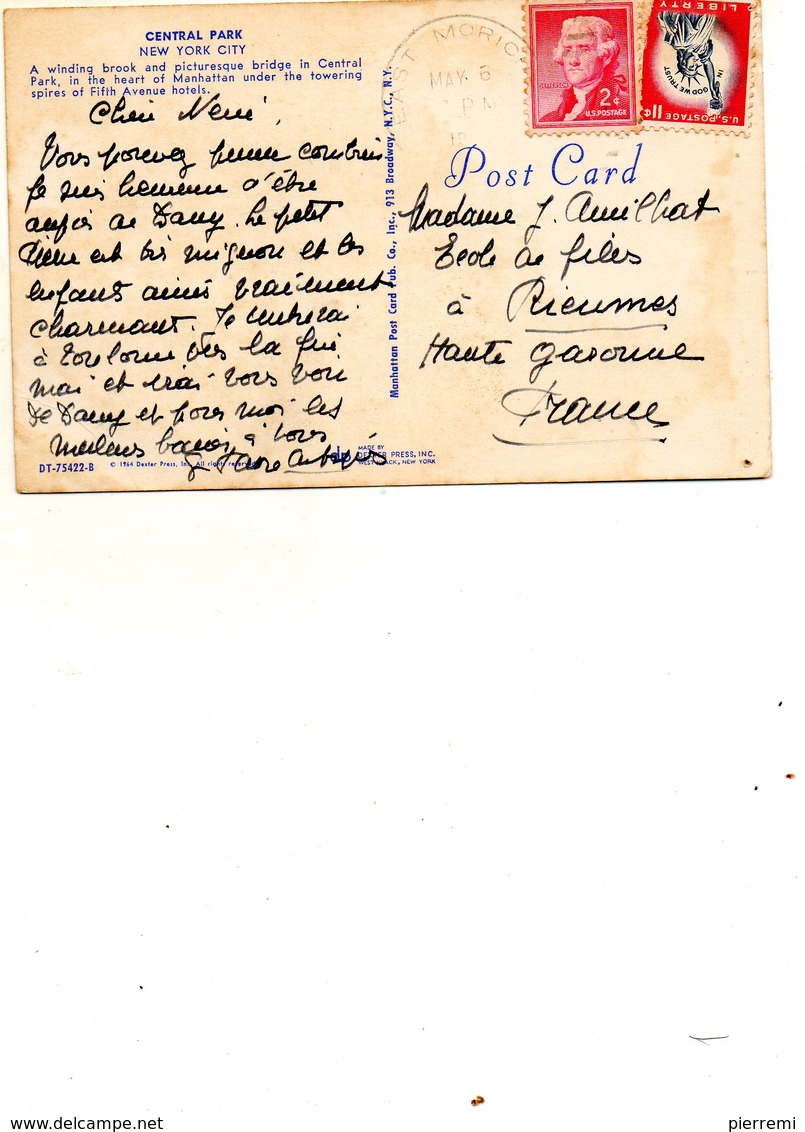 CENTRAL PARK
NEW YORK CITY
A winding brook and picturesque bridge in Central
Park, in the heart of Manhattan under the towering
spires of Fifth Avenue hotels.
Vous pouvez penser combien
Je suis d'être
de Dany. Le petit
est très mignon et les
enfants aussi vraiment
charmant. Je rentrerai
à Toulouse vers la fin
mai et irai vous voir
De Dany et pour moi les
meilleurs à vous
DT-75422-B
© 1964 Dexter Press, Inc. All rights reserved
MADE BY
DEXTER PRESS, INC.
WEST NYACK, NEW YORK
Manhattan Post Card Pub. Co., Inc., 913 Broadway, N.Y.C., N.Y.
EAST MORIC
MAY 6
PM
JEFFERSON
2¢
U.S. POSTAGE
LIBERTY
IN GOD WE TRUST
U.S. POSTAGE 11¢
Post Card
Madame J. Amilhat
Ecole de filles
à Rieumes
Haute garonne
France
pierremi